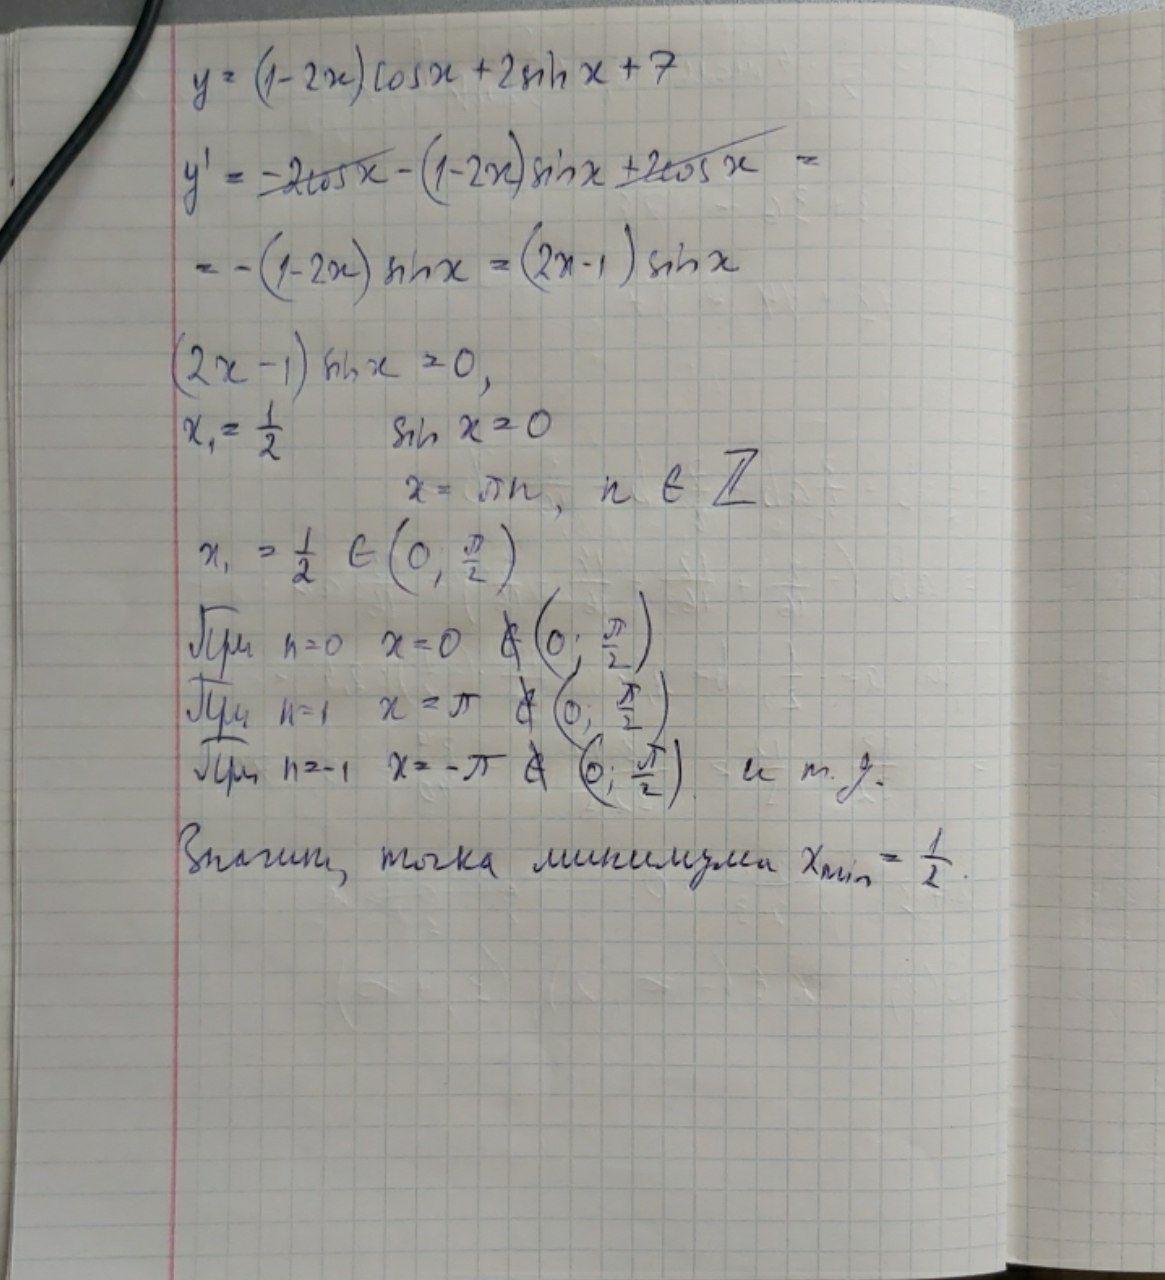 y = (1-2x) cos x + 2 sin x + 7
y' = -2cos x - (1-2x) sin x + 2cos x =
= -(1-2x) sin x = (2x-1) sin x
(2x-1) sin x = 0,
x₁ = 1/2 sin x = 0
x = πn, n ∈ ℤ
x₁ = 1/2 ∈ (0; π/2)
При n=0 x=0 ∉ (0; π/2)
При n=1 x=π ∉ (0; π/2)
При n=-1 x=-π ∉ (0; π/2) и т.д.
Значит, точка минимума xmin = 1/2.